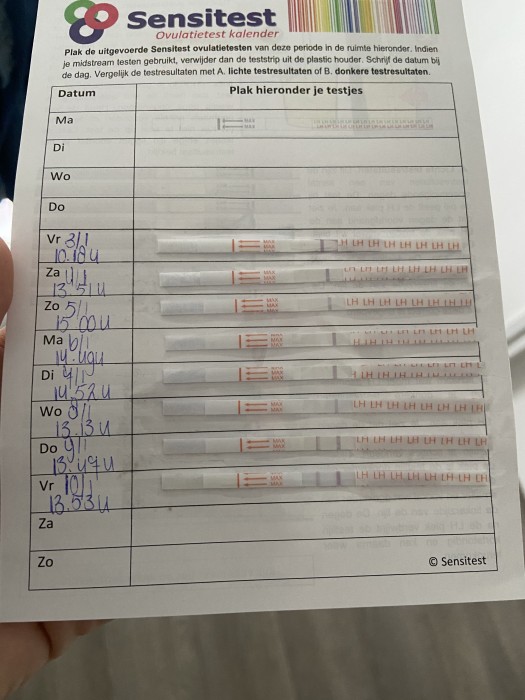 Sensitest
Ovulatietest kalender
Plak de uitgevoerde Sensitest ovulatietesten van deze periode in de ruimte hieronder. Indien
je midstream testen gebruikt, verwijder dan de teststrip uit de plastic houder. Schrijf de datum bij
de dag. Vergelijk de testresultaten met A. lichte testresultaten of B. donkere testresultaten.
Datum Plak hieronder je testjes
Ma
Di
Wo
Do
Vr 3/1 MAX MAX LH LH LH LH LH LH LH
10.18u
Za MAX MAX LH LH LH LH LH LH LH
13.51u
Zo 5/1 MAX MAX LH LH LH LH LH LH LH
15.00u
Ma 6/1 MAX MAX LH LH LH LH LH LH
14.49u
Di MAX MAX LH LH LH LH LH LH
14.52u
Wo 8/1 MAX MAX LH LH LH LH LH LH LH LH
13.13u
Do 9/1 MAX MAX LH LH LH LH LH LH LH
13.47u
Vr 10/1 MAX MAX LH LH LH LH LH LH LH
13.53u
Za
Zo
© Sensitest